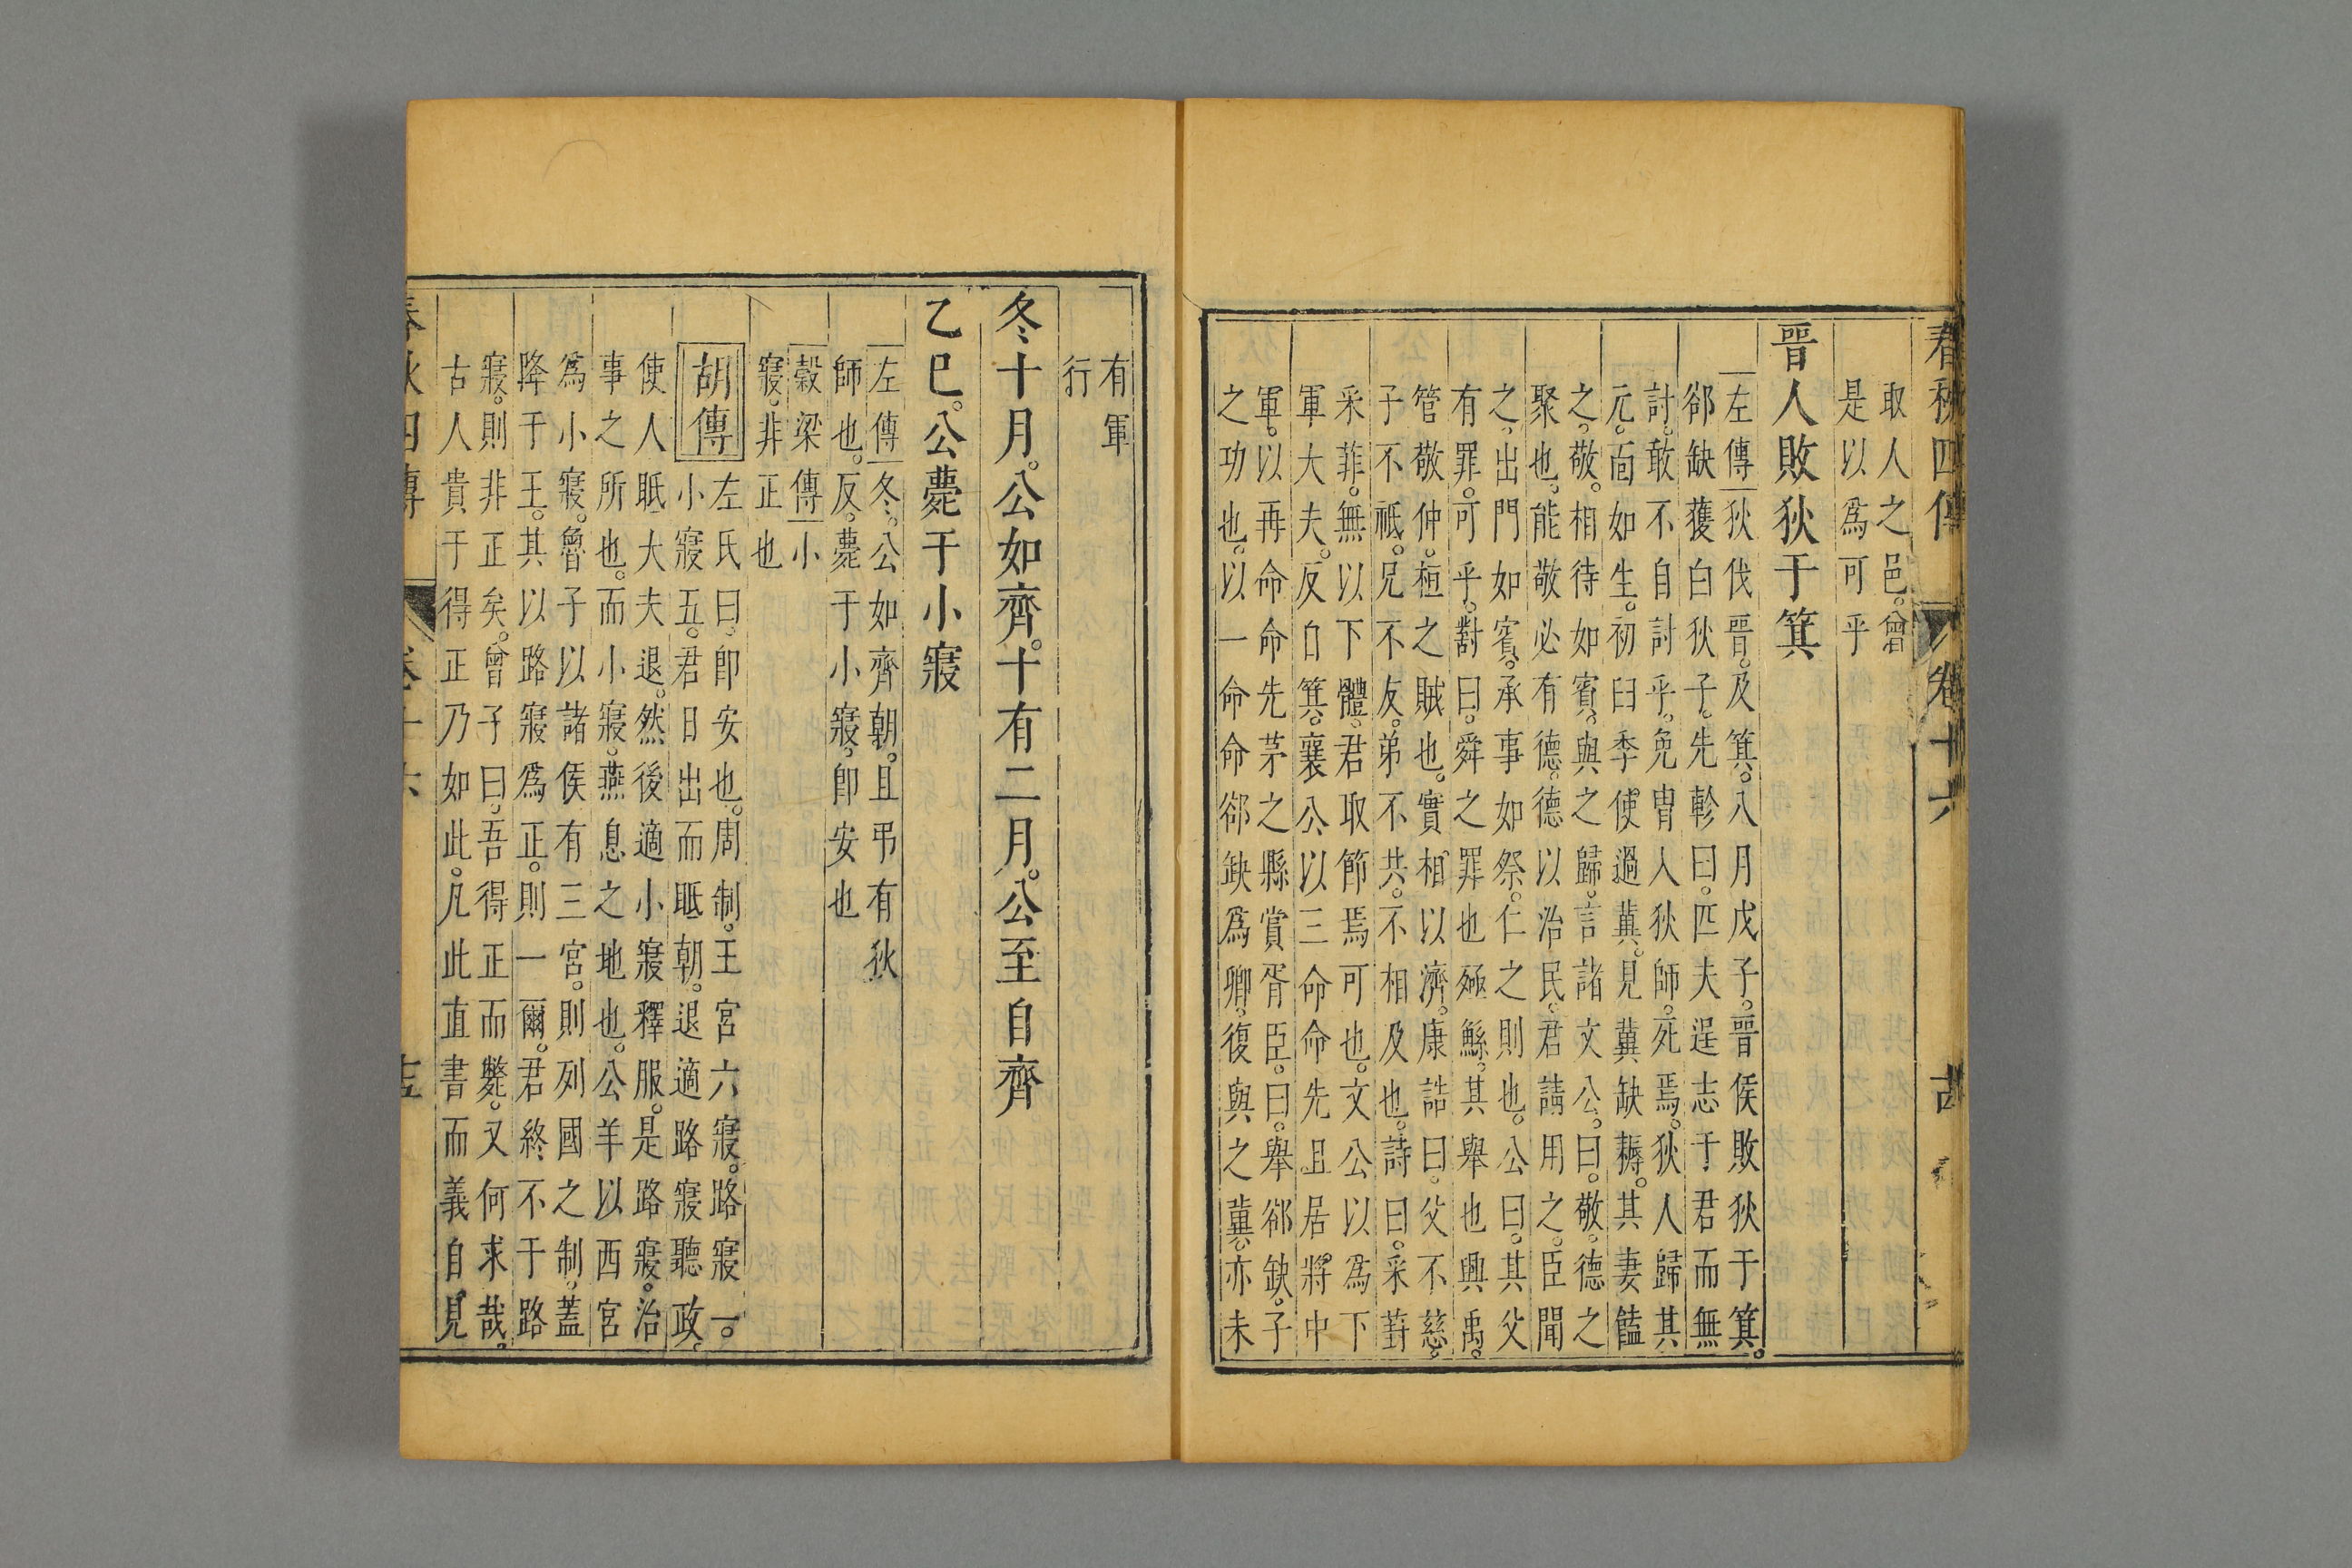 春秋四傳 卷十六 十四
取人之邑曾
是以爲可乎
晉人敗狄于箕
左傳狄伐晉及箕八月戊子晉侯敗狄于箕
郤缺獲白狄子先軫曰匹夫逞志于君而無
討敢不自討乎免冑入狄師死焉狄人歸其
元靣如生初臼季使過冀見冀缺耨其妻饁
之敬相待如賓與之歸言諸文公曰敬德之
聚也能敬必有德德以治民君請用之臣聞
之出門如賓承事如祭仁之則也公曰其父
有罪可乎對曰舜之罪也殛鯀其舉也興禹
管敬仲桓之賊也實相以濟康誥曰父不慈
子不祗兄不友弟不共不相及也詩曰采葑
采菲無以下體君取節焉可也文公以爲下
軍大夫反自箕襄公以三命命先且居將中
軍以再命命先茅之縣賞胥臣曰舉郤缺子
之功也以一命命郤缺爲卿復與之冀亦未
有軍
行
冬十月公如齊十有二月公至自齊
乙巳公薨于小寢
左傳冬公如齊朝且弔有狄
師也反薨于小寢即安也
穀梁傳小
寢非正也
胡傳
左氏曰即安也周制王宮六寢路寢一
小寢五君日出而眡朝退適路寢聽政
使人眡大夫退然後適小寢釋服是路寢治
事之所也而小寢燕息之地也公羊以西宮
爲小寢魯子以諸侯有三宮則列國之制蓋
降于王其以路寢爲正則一爾君終不于路
寢則非正矣曾子曰吾得正而斃又何求哉
古人貴于得正乃如此凡此直書而義自見
春秋四傳 卷十六 十五